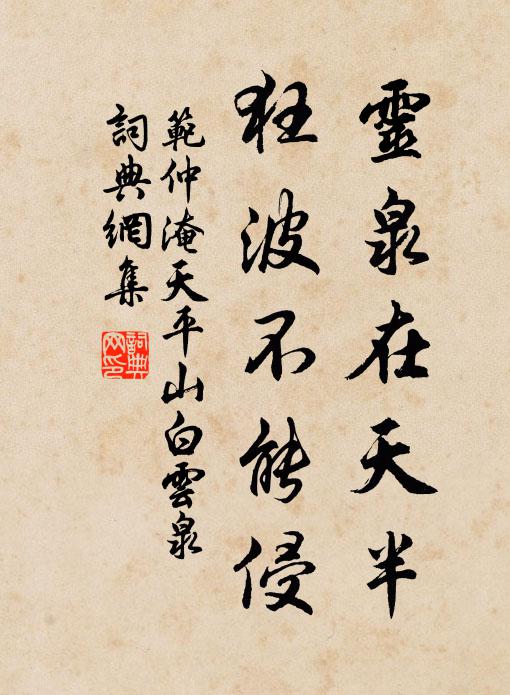 靈泉在天半
狂波不能侵
範仲淹天平山白雲泉
詞典網集
詞典网印